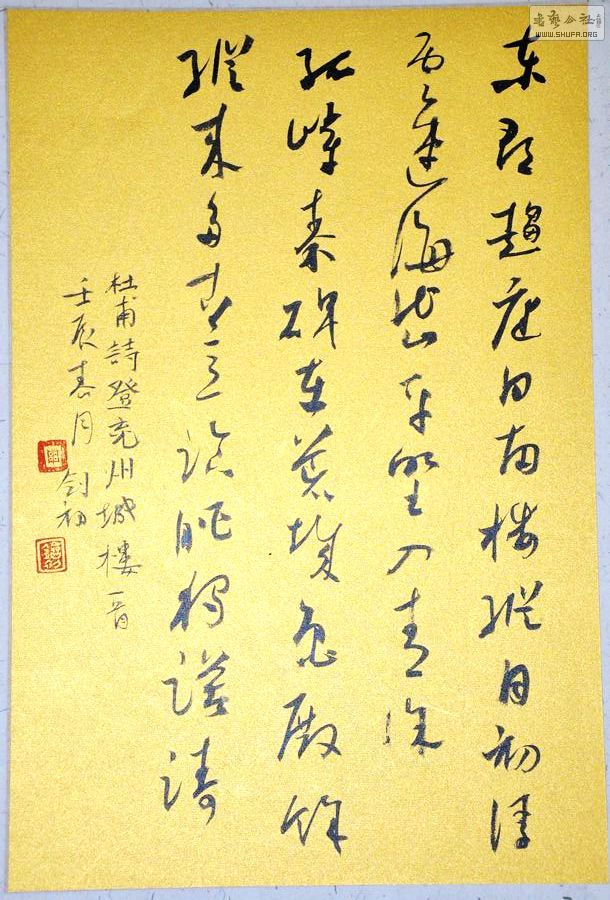 書藝公社
WWW.SHUFA.ORG
东郡趨庭日南楼縱目初浮
雲連海岱平野入青徐
孤嶂秦碑在荒城魯殿餘
縱来多古意臨眺獨躇躊
杜甫詩登兖州城樓一首
壬辰春月 剑初